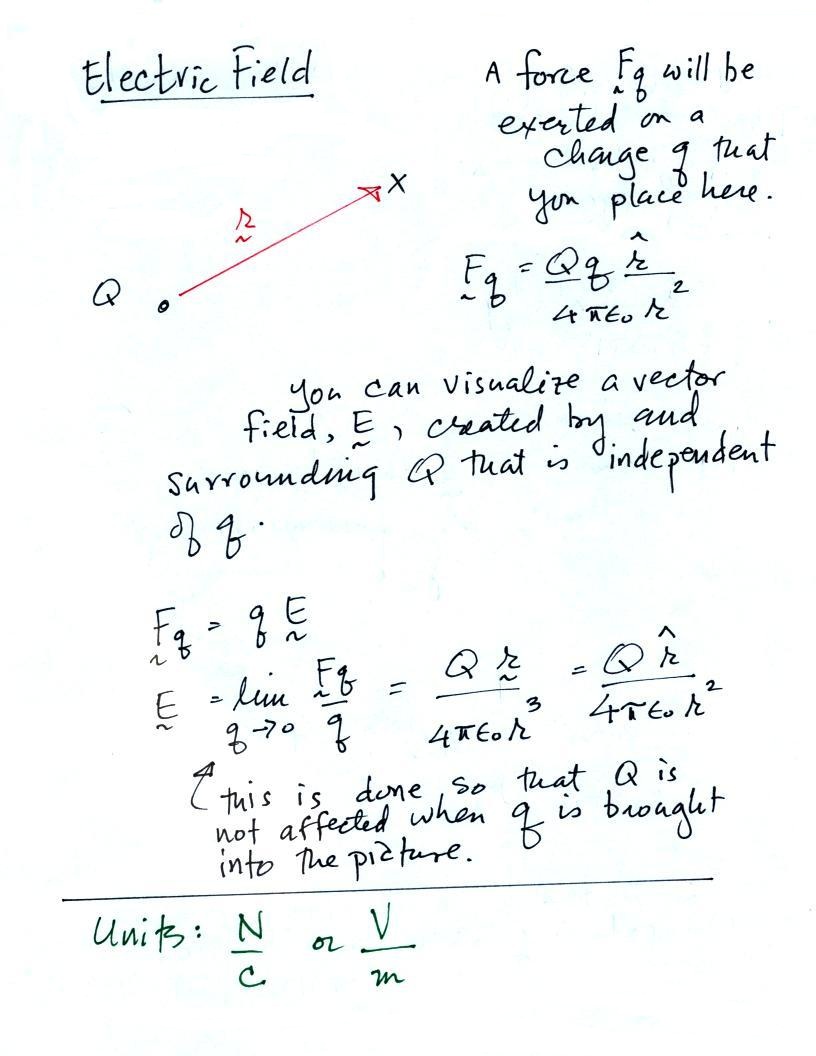 Electric Field
A force F̰q will be
exerted on a
charge q that
you place here.
r̰
X
Q
F̰q = Qq r̂ / 4πϵ₀ r²
you can visualize a vector
field, Ḛ, created by and
surrounding Q that is independent
of q.
F̰q = q Ḛ
Ḛ = lim q→0 F̰q / q = Q r̰ / 4πϵ₀ r³ = Q r̂ / 4πϵ₀ r²
this is done so that Q is
not affected when q is brought
into the picture.
Units: N/C or V/m